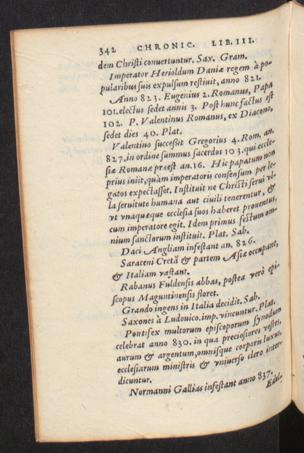 342 CHRONIC. LIB. III.
dem Christi conuertuntur. Sax. Gram.
Imperator Herioldum Daniæ regem à po-
pularibus suis expulsum restituit, anno 821.
Anno 823. Eugenius 2. Romanus, Papa
101. electus sedet annis 3. Post hunc factus est
102. P. Valentinus Romanus, ex Diacono,
sedet dies 40. Plat.
Valentino successit Gregorius 4. Rom. an.
827. in ordine summus sacerdos 103. qui eccle-
siæ Romanæ præest an. 16. Hic papatum non
prius iniit, quàm imperatoris consensum per le-
gatos expectasset. Instituit ne Christi serui vl-
la seruitute humana aut ciuili tenerentur, &
vt vnaquæque ecclesia suos haberet prouentus,
cum imperatore egit. Idem primus festum om-
nium sanctorum instituit. Plat. Sab.
Daci Angliam infestant an. 826.
Saraceni Cretã & partem Asiæ occupant,
& Italiam vastant.
Rabanus Fuldensis abbas, postea verò epi-
scopus Maguntinensis floret.
Grando ingens in Italia decidit. Sab.
Saxones à Ludouico. imp. vincuntur. Plat.
Pontifex multorum episcoporum synodum
celebrat anno 830. in qua preciosiores vestes,
aurum & argentum, omnisque corporis luxus
ecclesiarum ministris & vniuerso clero inter-
dicuntur.
Normanni Gallias infestant anno 837.